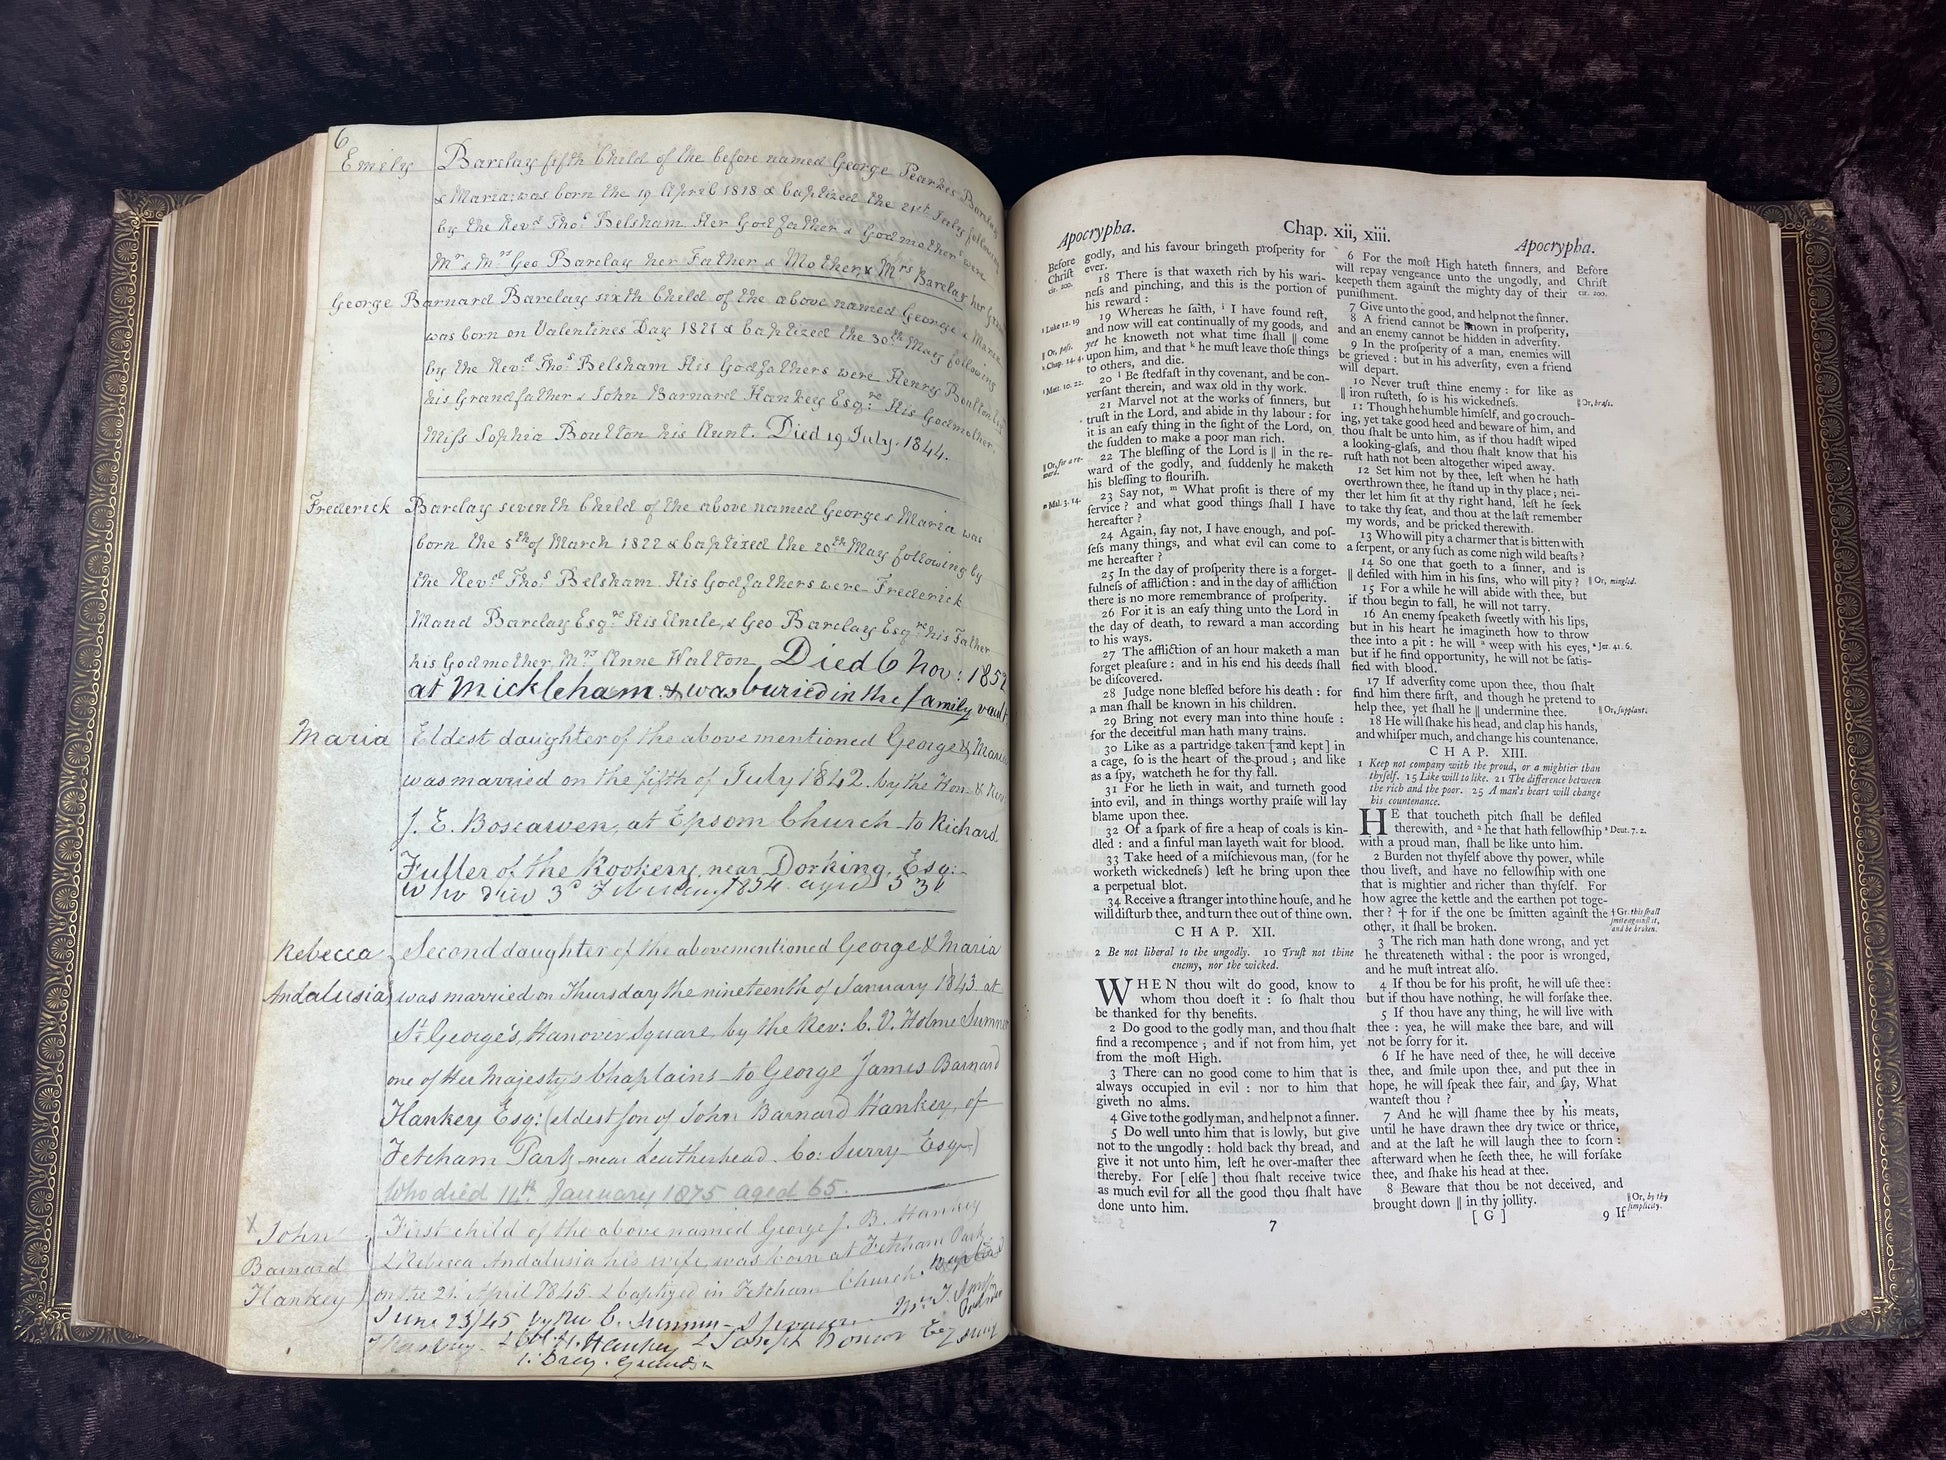 6
Emily Barclay fifth Child of the before named George Pearkes Barclay
& Maria: was born the 19 April 1818 & baptized the 21st July following
by the Revd. Thos. Belsham. Her Godfather & Godmother were
Mr & Mrs Geo Barclay her Father & Mother, & Mrs Barclay her
George Barnard Barclay sixth Child of the above named George & Maria
was born on Valentines Day 1821 & baptized the 30th May following
by the Revd. Thos. Belsham His Godfathers were Henry Boulton Esq
his Grandfather & John Barnard Hankey Esqre. His Godmother
Miſs Sophia Boulton his Aunt. Died 19 July. 1844.
Frederick Barclay seventh Child of the above named George & Maria was
born the 5th of March 1822 & baptized the 20th May following by
the Revd. Thos. Belsham. His Godfathers were Frederick
Maud Barclay Esqre. His Uncle, & Geo Barclay Esqre. his Father
his Godmother Mrs Anne Walton Died 6 Nov: 1852
at Mickleham & was buried in the family vault
Maria Eldest daughter of the above mentioned George & Maria
was married on the fifth of July 1842. by the Hon. & Rev
J. E. Boscawen, at Epsom Church to Richard
Fuller of the Rookery near Dorking. Esq:
who died 3d 1854 aged 53
Rebecca Second daughter of the abovementioned George & Maria
Andalusia was married on Thursday the nineteenth of January 1843 at
St George's, Hanover Square, by the Rev: C. V. Holme Sumner
one of Her Majesty's Chaplains to George James Barnard
Hankey Esq: (eldest son of John Barnard Hankey, of
Fetcham Park near Leatherhead Co: Surry Esqr.)
Who died 14th January 1875 aged 65.
x John First child of the above named George J. B. Hankey
Barnard & Rebecca Andalusia his wife, was born at Fetcham Park
Hankey on the 21st April 1845 & baptized in Fetcham Church
June 23/45 by Rev C. Sumner
Hankey & Joseph Bonsor Esq
Apocrypha. Chap. xii, xiii. Apocrypha.
Before
Chriſt
cir. 200.
godly, and his favour bringeth proſperity for
ever.
18 There is that waxeth rich by his wari-
neſs and pinching, and this is the portion of
his reward :
i Luke 12. 19
19 Whereas he ſaith, i I have found reſt,
and now will eat continually of my goods, and
|| Or, paſs.
yet he knoweth not what time ſhall || come
k Chap. 14. 4.
upon him, and that k he muſt leave thoſe things
to others, and die.
l Matt. 10. 22.
20 l Be ſtedfaſt in thy covenant, and be con-
verſant therein, and wax old in thy work.
21 Marvel not at the works of ſinners, but
truſt in the Lord, and abide in thy labour : for
it is an eaſy thing in the ſight of the Lord, on
the ſudden to make a poor man rich.
|| Or, for a re-
ward.
22 The bleſſing of the Lord is || in the re-
ward of the godly, and ſuddenly he maketh
his bleſſing to flouriſh.
m Mal. 3. 14.
23 Say not, m What profit is there of my
ſervice ? and what good things ſhall I have
hereafter ?
24 Again, ſay not, I have enough, and poſ-
ſeſs many things, and what evil can come to
me hereafter ?
25 In the day of proſperity there is a forget-
fulneſs of affliction : and in the day of affliction
there is no more remembrance of proſperity.
26 For it is an eaſy thing unto the Lord in
the day of death, to reward a man according
to his ways.
27 The affliction of an hour maketh a man
forget pleaſure : and in his end his deeds ſhall
be diſcovered.
28 Judge none bleſſed before his death : for
a man ſhall be known in his children.
29 Bring not every man into thine houſe :
for the deceitful man hath many trains.
30 Like as a partridge taken [and kept] in
a cage, ſo is the heart of the proud ; and like
as a ſpy, watcheth he for thy fall.
31 For he lieth in wait, and turneth good
into evil, and in things worthy praiſe will lay
blame upon thee.
32 Of a ſpark of fire a heap of coals is kin-
dled : and a ſinful man layeth wait for blood.
33 Take heed of a miſchievous man, (for he
worketh wickedneſs) leſt he bring upon thee
a perpetual blot.
34 Receive a ſtranger into thine houſe, and he
will diſturb thee, and turn thee out of thine own.
CHAP. XII.
2 Be not liberal to the ungodly. 10 Truſt not thine
enemy, nor the wicked.
WHEN thou wilt do good, know to
whom thou doeſt it : ſo ſhalt thou
be thanked for thy benefits.
2 Do good to the godly man, and thou ſhalt
find a recompence ; and if not from him, yet
from the moſt High.
3 There can no good come to him that is
always occupied in evil : nor to him that
giveth no alms.
4 Give to the godly man, and help not a ſinner.
5 Do well unto him that is lowly, but give
not to the ungodly : hold back thy bread, and
give it not unto him, leſt he over-maſter thee
thereby. For [elſe] thou ſhalt receive twice
as much evil for all the good thou ſhalt have
done unto him.
7
6 For the moſt High hateth ſinners, and
will repay vengeance unto the ungodly, and
keepeth them againſt the mighty day of their
puniſhment.
Before
Chriſt
cir. 200.
7 Give unto the good, and help not the ſinner.
8 A friend cannot be known in proſperity,
and an enemy cannot be hidden in adverſity.
9 In the proſperity of a man, enemies will
be grieved : but in his adverſity, even a friend
will depart.
10 Never truſt thine enemy : for like as
|| iron ruſteth, ſo is his wickedneſs.
|| Or, braſs.
11 Though he humble himſelf, and go crouch-
ing, yet take good heed and beware of him, and
thou ſhalt be unto him, as if thou hadſt wiped
a looking-glaſs, and thou ſhalt know that his
ruſt hath not been altogether wiped away.
12 Set him not by thee, leſt when he hath
overthrown thee, he ſtand up in thy place ; nei-
ther let him ſit at thy right hand, leſt he ſeek
to take thy ſeat, and thou at the laſt remember
my words, and be pricked therewith.
13 Who will pity a charmer that is bitten with
a ſerpent, or any ſuch as come nigh wild beaſts ?
14 So one that goeth to a ſinner, and is
|| defiled with him in his ſins, who will pity ?
|| Or, mingled.
15 For a while he will abide with thee, but
if thou begin to fall, he will not tarry.
16 An enemy ſpeaketh ſweetly with his lips,
but in his heart he imagineth how to throw
thee into a pit : he will a weep with his eyes,
a Jer. 41. 6.
but if he find opportunity, he will not be ſatis-
fied with blood.
17 If adverſity come upon thee, thou ſhalt
find him there firſt, and though he pretend to
help thee, yet ſhall he || undermine thee.
|| Or, ſupplant.
18 He will ſhake his head, and clap his hands,
and whiſper much, and change his countenance.
CHAP. XIII.
1 Keep not company with the proud, or a mightier than
thyſelf. 15 Like will to like. 21 The difference between
the rich and the poor. 25 A man's heart will change
his countenance.
HE that toucheth pitch ſhall be defiled
therewith, and a he that hath fellowſhip
a Deut. 7. 2.
with a proud man, ſhall be like unto him.
2 Burden not thyſelf above thy power, while
thou liveſt, and have no fellowſhip with one
that is mightier and richer than thyſelf. For
how agree the kettle and the earthen pot toge-
ther ? † for if the one be ſmitten againſt the
other, it ſhall be broken.
† Gr. this ſhall
ſmite againſt it,
and be broken.
3 The rich man hath done wrong, and yet
he threateneth withal : the poor is wronged,
and he muſt intreat alſo.
4 If thou be for his profit, he will uſe thee :
but if thou have nothing, he will forſake thee.
5 If thou have any thing, he will live with
thee : yea, he will make thee bare, and will
not be ſorry for it.
6 If he have need of thee, he will deceive
thee, and ſmile upon thee, and put thee in
hope, he will ſpeak thee fair, and ſay, What
wanteſt thou ?
7 And he will ſhame thee by his meats,
until he have drawn thee dry twice or thrice,
and at the laſt he will laugh thee to ſcorn :
afterward when he ſeeth thee, he will forſake
thee, and ſhake his head at thee.
8 Beware that thou be not deceived, and
brought down || in thy jollity.
|| Or, by thy
ſimplicity.
[G] 9 If